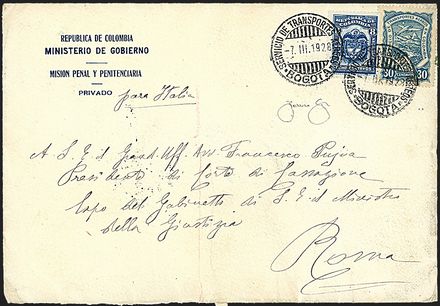 REPUBLICA DE COLOMBIA
MINISTERIO DE GOBIERNO
MISION PENAL Y PENITENCIARIA
PRIVADO
para Italia
SERVICIO DE TRANSPORTES
-7.III.1928
BOGOTA
REPUBLICA DE COLOMBIA
8
30
30
BOGOTA
A S. E. il Grand. Uff. Avv. Francesco
Presidente di Corte di Cassazione
Capo del Gabinetto di S. E. il Ministro
della Giustizia
Roma